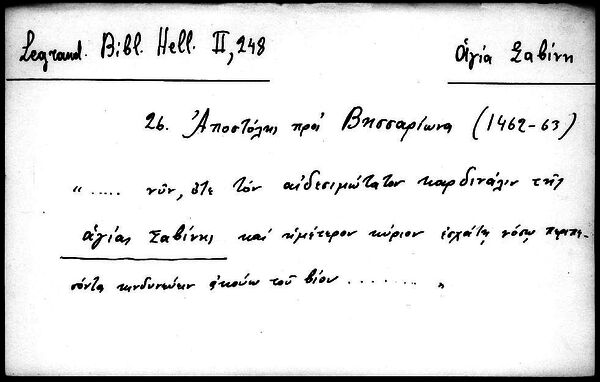 Legrand. Bibl. Hell. II, 248
Ἁγία Σαβίνη
26. Ἀποστόλης πρὸς Βησσαρίωνα (1462-63)
“ ..... νῦν, ὅτε τὸν αἰδεσιμώτατον καρδινάλιν τῆς
ἁγίας Σαβίνης καὶ ἡμέτερον κύριον ἐσχάτῃ νόσῳ περιπε-
σόντα κινδυνεύειν ἀκούω τοῦ βίου ........ „